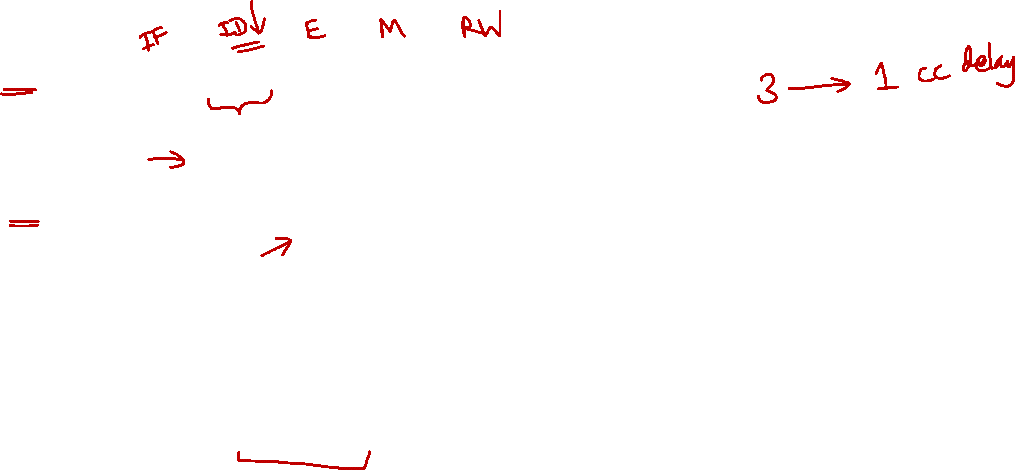 IF ID↓ E M RW
3 → 1 cc delay